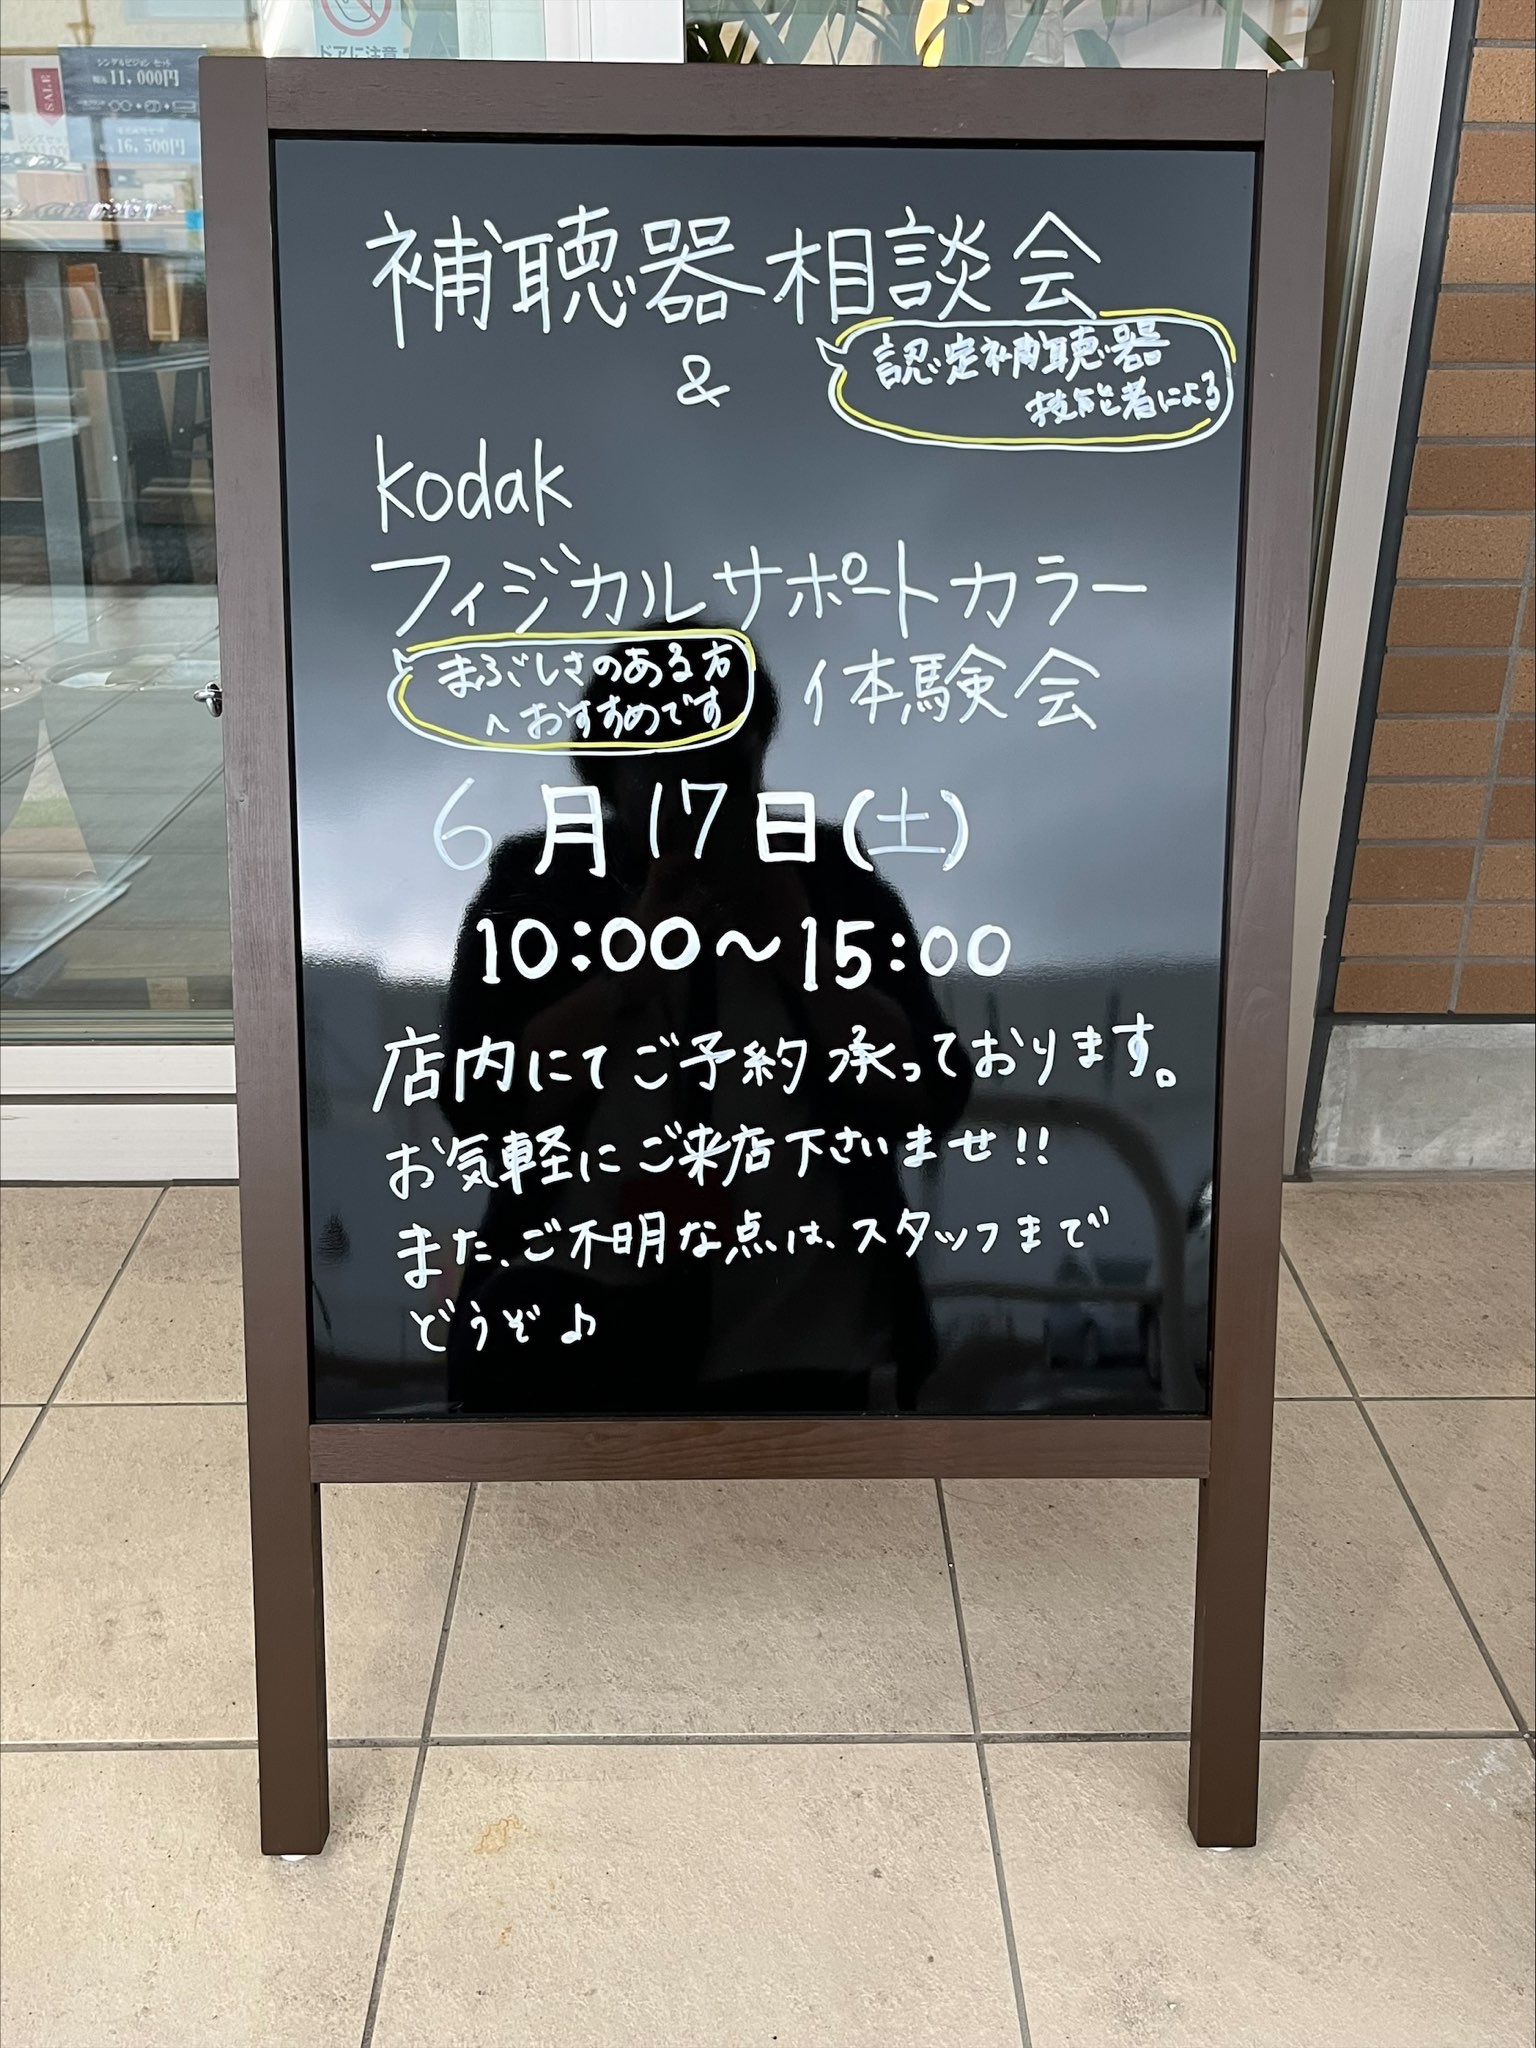 ドアに注意
シングルビジョンセット
税込11,000円
SALE
16,500円
補聴器相談会
認定補聴器
技能者による
&
kodak
フィジカルサポートカラー
まぶしさのある方
へおすすめです
体験会
6月17日(土)
10:00〜15:00
店内にてご予約承っております。
お気軽にご来店下さいませ!!
また、ご不明な点は、スタッフまで
どうぞ♪